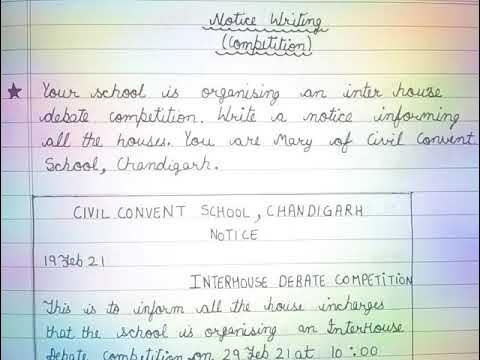 Notice Writing
(Competition)
★ Your school is organising an inter house
debate competition. Write a notice informing
all the houses. You are Mary of Civil Convent
School, Chandigarh.
CIVIL CONVENT SCHOOL, CHANDIGARH
NOTICE
19 Feb 21
INTERHOUSE DEBATE COMPETITION
This is to inform all the house incharges
that the school is organising an InterHouse
Debate Competition on 29 Feb 21 at 10:00